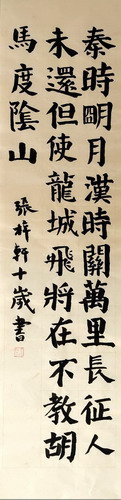 秦時明月漢時關萬里長征人
未還但使龍城飛將在不教胡
馬度陰山
張梓軒十歲書